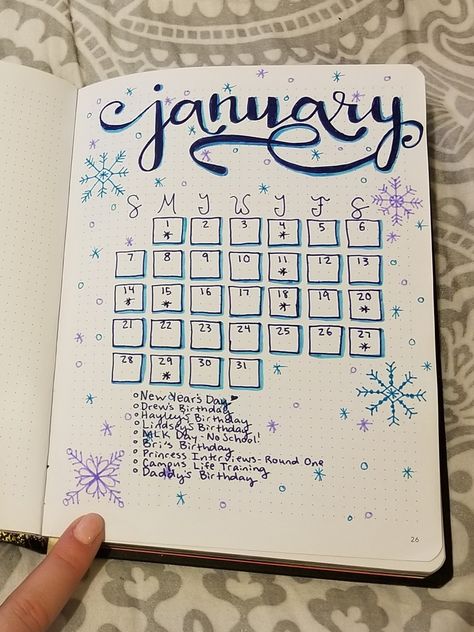 january
S M T W T F S
1 * 2 3 4 * 5 6
7 8 9 10 11 * 12 13
14 * 15 * 16 17 18 * 19 20 *
21 22 23 24 25 26 27 *
28 29 * 30 31
New Year's Day
Drew's Birthday
Hayley's Birthday
Lindsey's Birthday
MLK Day - No School!
Bri's Birthday
Princess Interviews - Round One
Campus Life Training
Daddy's Birthday
26